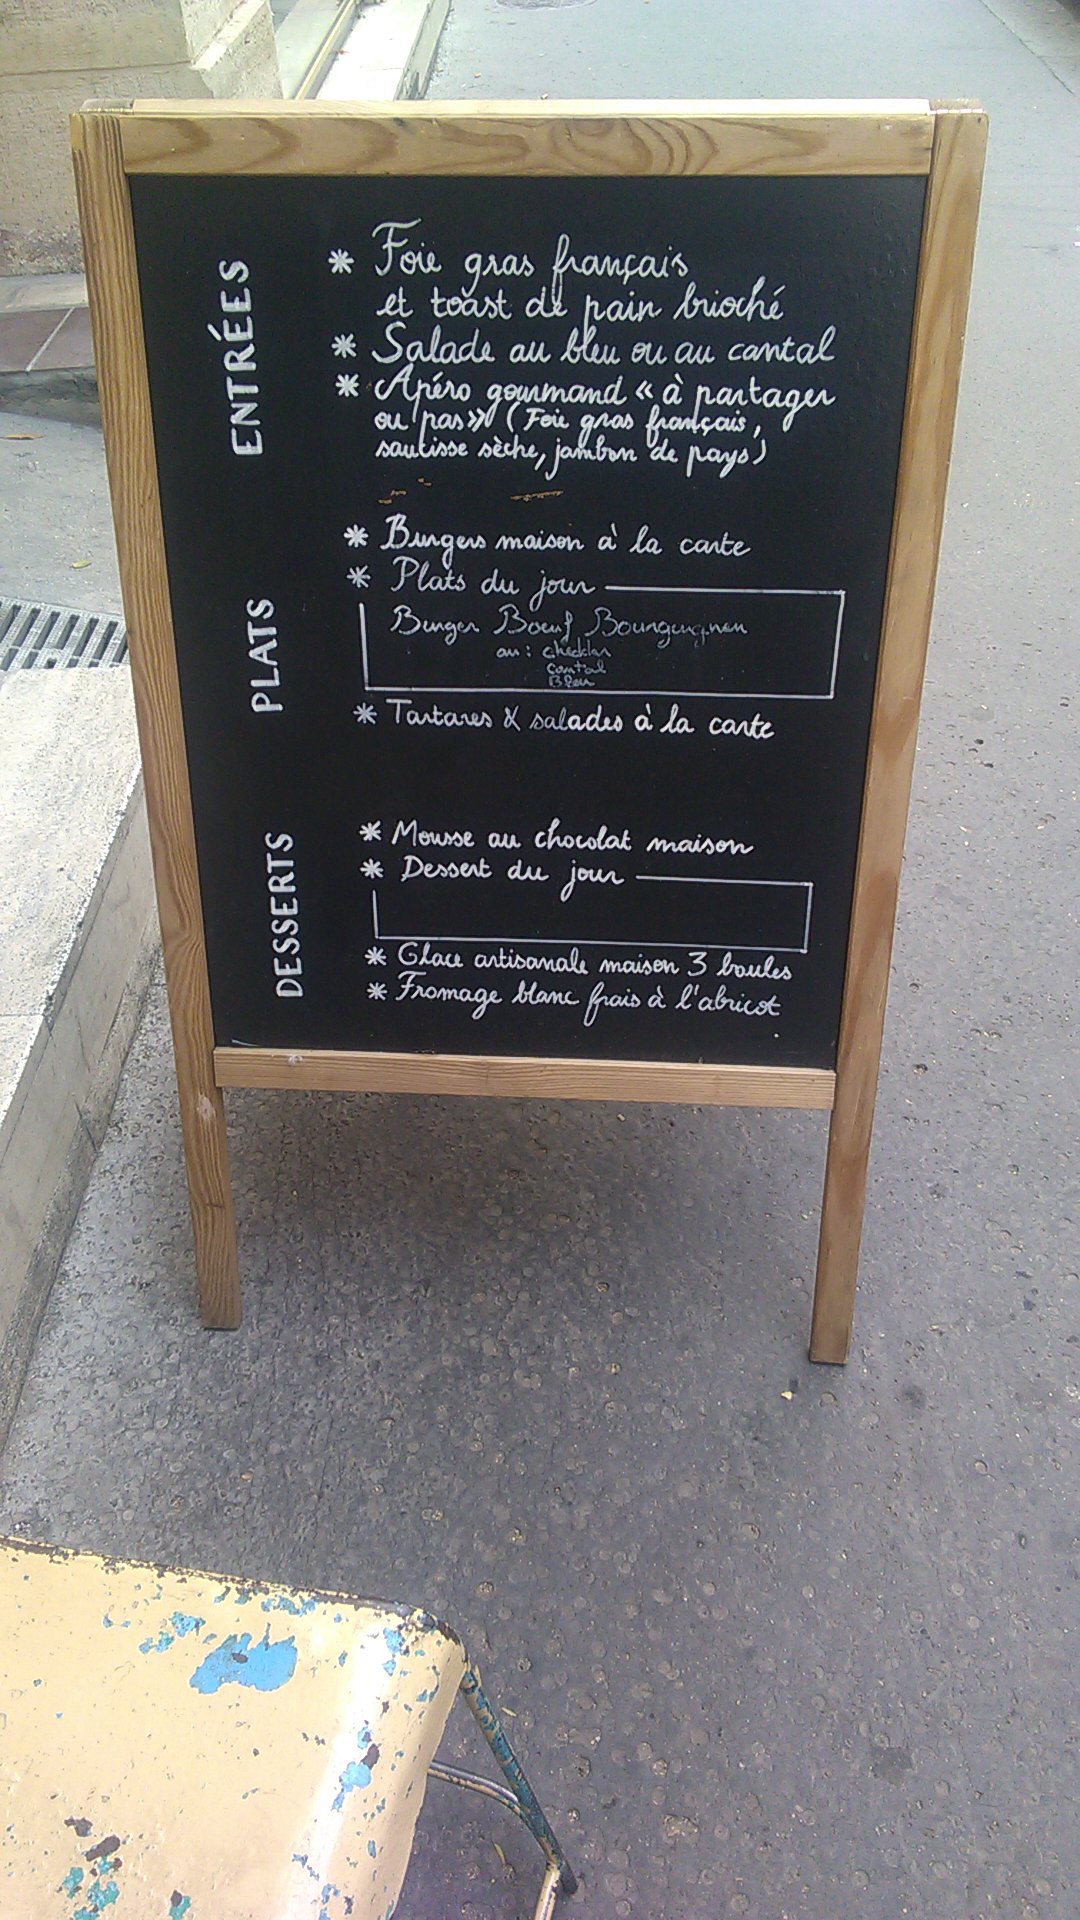 ENTRÉES
* Foie gras français
et toast de pain brioché
* Salade au bleu ou au cantal
* Apéro gourmand « à partager
ou pas » (Foie gras français,
saucisse sèche, jambon de pays)
PLATS
* Burgers maison à la carte
* Plats du jour
Burger Boeuf Bourguignon
au : cheddar
cantal
Bleu
* Tartares & salades à la carte
DESSERTS
* Mousse au chocolat maison
* Dessert du jour
* Glace artisanale maison 3 boules
* Fromage blanc frais à l'abricot